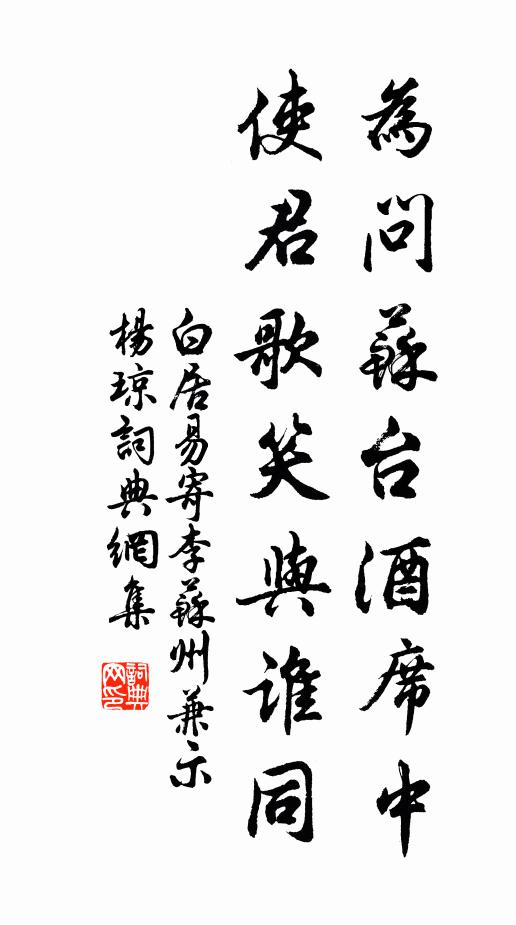 為問蘇台酒席中
使君歌笑與誰同
白居易寄李蘇州兼示
楊琼詞典網集
詞典網印